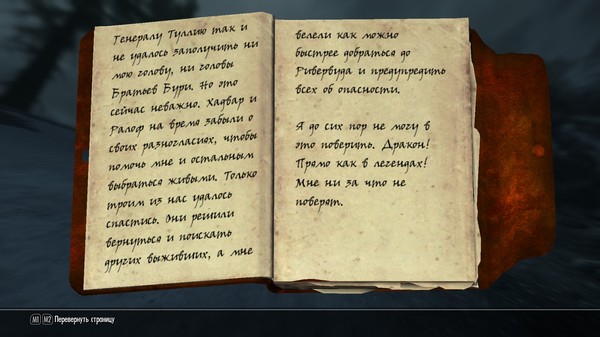 Генералу Туллию так и
не удалось заполучить ни
мою голову, ни головы
Братьев Бури. Но это
сейчас неважно. Хадвар и
Ралоф на время забыли о
своих разногласиях, чтобы
помочь мне и остальным
выбраться живыми. Только
троим из нас удалось
спастись. Они решили
вернуться и поискать
других выживших, а мне
велели как можно
быстрее добраться до
Ривервуда и предупредить
всех об опасности.
Я до сих пор не могу в
это поверить. Дракон!
Прямо как в легендах!
Мне ни за что не
поверят.
M1 M2 Перевернуть страницу